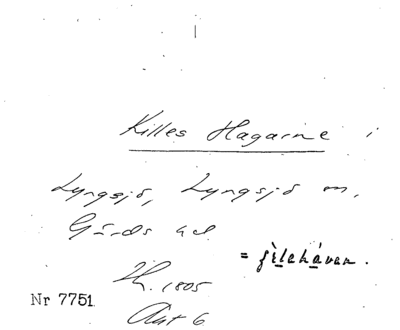 Killes Hagarne i
Lyngsjö, Lyngsjö sn,
Gärds hd.
= jìlehávan.
Sk. 1805
Nr 7751
Akt 6